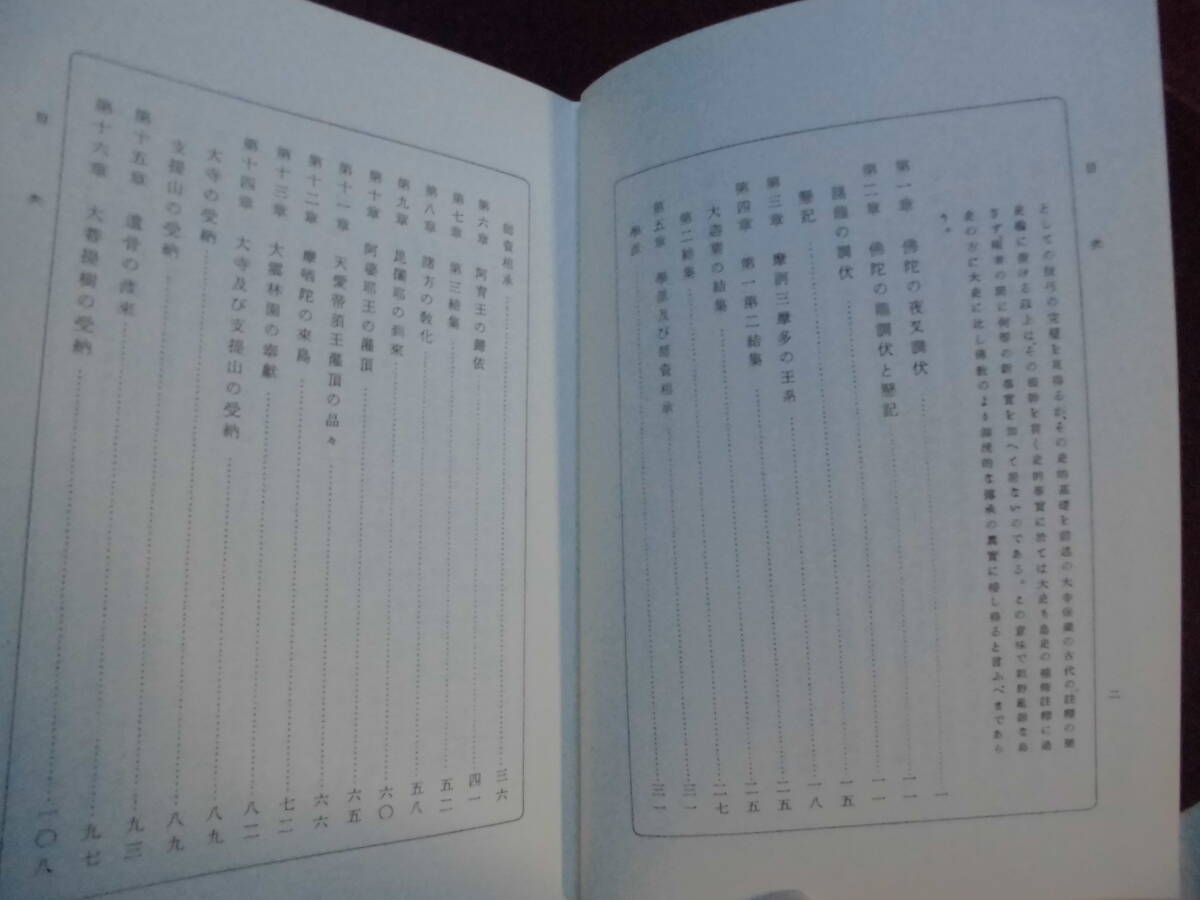 目次
二
としての發弓の完璧を見得るが、その史的基礎を前述の大寺保藏の古代の註釋の歴
史編に置ける以上は、その修飾を質く史的事實に於ては大史も島史の補修註釋に過
ぎず兩者の間に何等の新事實を加へて居ないのである。この意味で粗野亂雜な島
史の方に大史に比し佛教のより源流的な傳承の眞實に接し得ると言ふべきであら
う。
第一章 佛陀の夜叉調伏 一
第二章 佛陀の龍調伏と懸記 一一
龍の調伏 一一
懸記 一五
第三章 摩訶三摩多の王系 一八
第四章 第一第二結集 二五
大迦葉の結集 二五
第二結集 二七
第五章 學派及び師資相承 三一
學派 三一
目次
師資相承 三六
第六章 阿育王の歸依 四一
第七章 第三結集 五二
第八章 諸方の教化 五八
第九章 毘闍耶の到來 六〇
第十章 阿婆耶王の灌頂 六五
第十一章 天愛帝須王灌頂の品々 六六
第十二章 摩哂陀の來島 七二
第十三章 大雲林園の奉獻 八二
第十四章 大寺及び支提山の受納 八九
大寺の受納 八九
支提山の受納 九三
第十五章 遺骨の渡來 九七
第十六章 大菩提樹の受納 一〇八